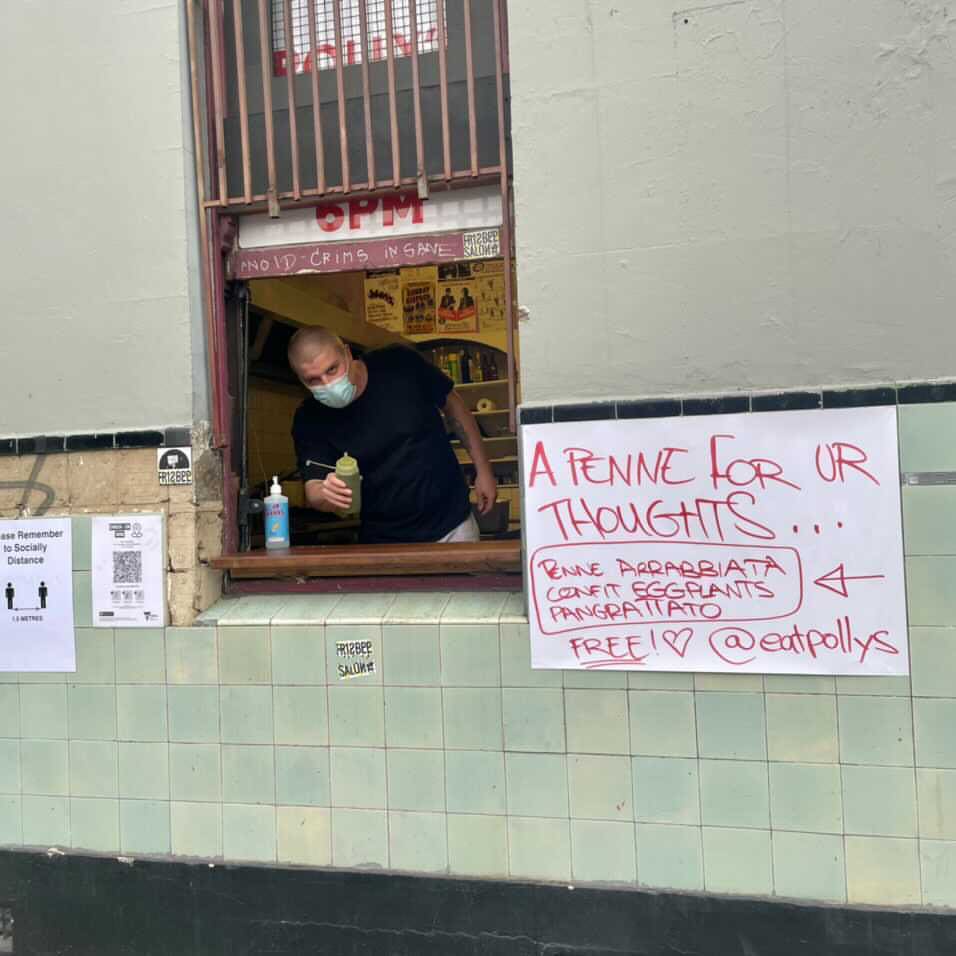 POLLY'S
6PM
ANOID-CRIMS INSANE
FR12BEE
SALON#
FR12BEE
ase Remember
to Socially
Distance
1.5 METRES
CHECK-IN
FR12BEE
SALON#
A PENNE FOR UR
THOUGHTS...
PENNE ARRABBIATA
CONFIT EGGPLANTS
PANGRATTATO
FREE!♡ @eatpollys